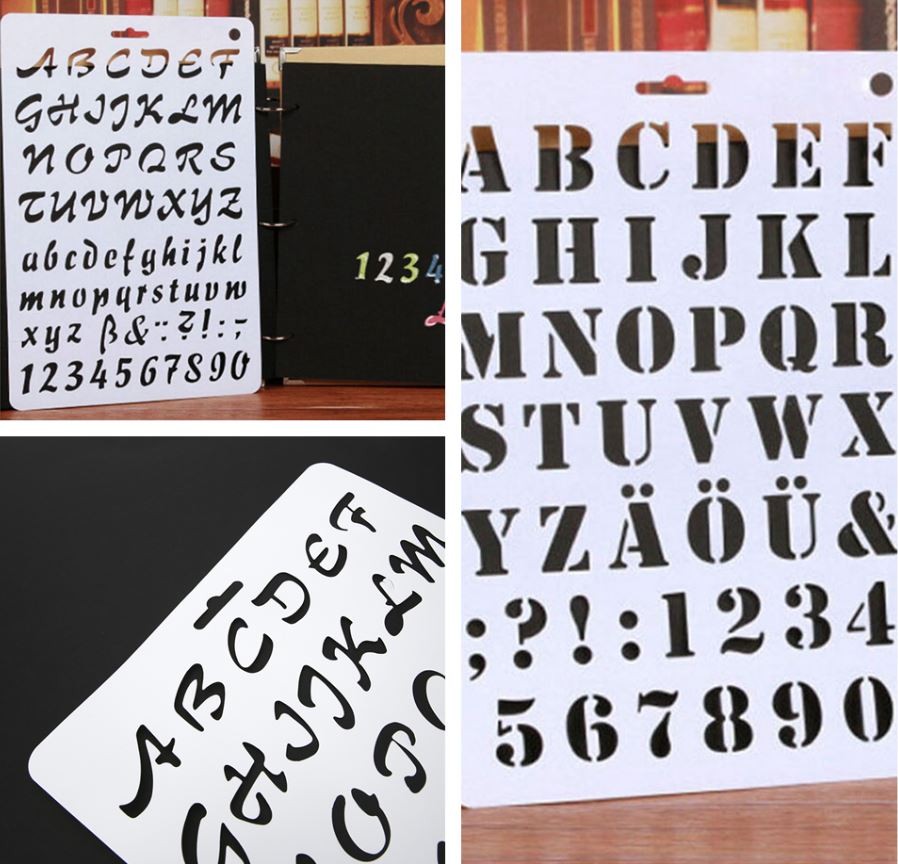 ABCDEF
GHIJKLM
NOPQRS
TUVWXYZ
abcdefghijkl
mnopqrstuvw
xyz ß&:;?!:;
1234567890
1234
ABCDEF
GHIJKLM
OP
ABCDEF
GHIJKL
MNOPQR
STUVWX
YZÄÖÜ&
;?!:1234
567890